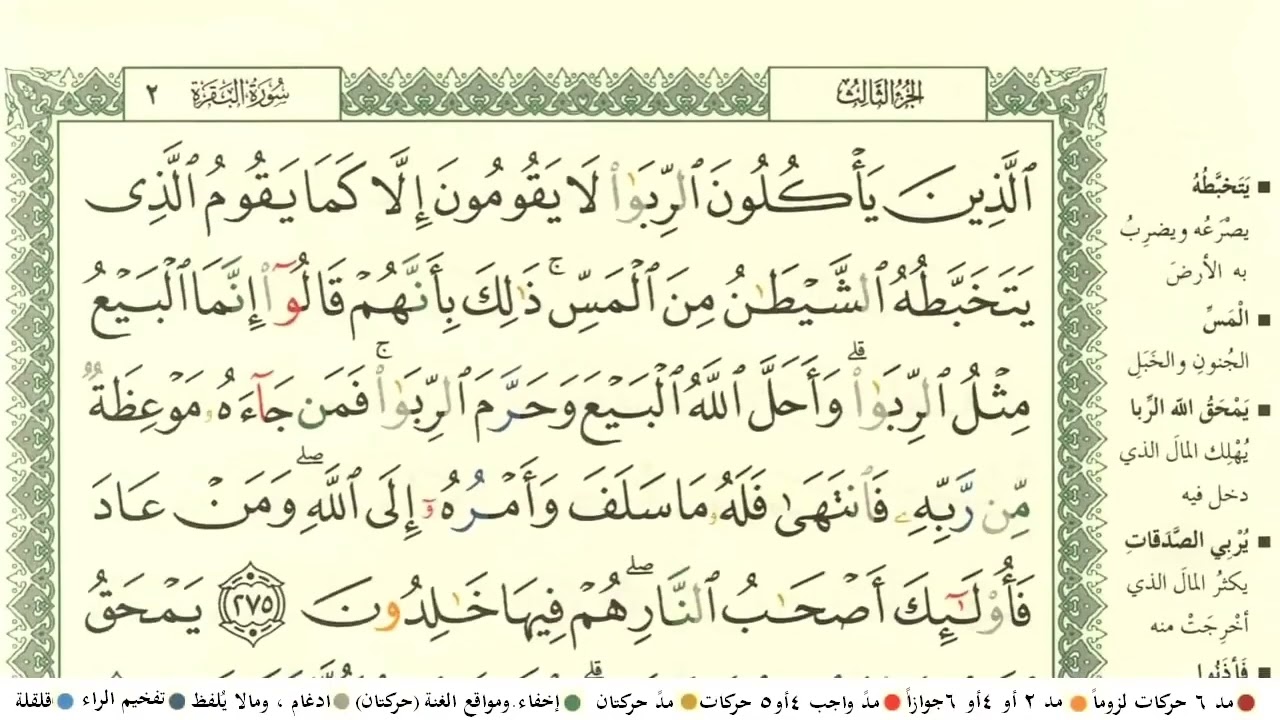 الجزء الثالث
سورة البقرة ٢
ٱلَّذِينَ يَأْكُلُونَ ٱلرِّبَوٰا۟ لَا يَقُومُونَ إِلَّا كَمَا يَقُومُ ٱلَّذِى
يَتَخَبَّطُهُ ٱلشَّيْطَٰنُ مِنَ ٱلْمَسِّ ۚ ذَٰلِكَ بِأَنَّهُمْ قَالُوٓا۟ إِنَّمَا ٱلْبَيْعُ
مِثْلُ ٱلرِّبَوٰا۟ ۗ وَأَحَلَّ ٱللَّهُ ٱلْبَيْعَ وَحَرَّمَ ٱلرِّبَوٰا۟ ۚ فَمَن جَآءَهُۥ مَوْعِظَةٌ
مِّن رَّبِّهِۦ فَٱنتَهَىٰ فَلَهُۥ مَا سَلَفَ وَأَمْرُهُۥٓ إِلَى ٱللَّهِ ۖ وَمَنْ عَادَ
فَأُو۟لَٰٓئِكَ أَصْحَٰبُ ٱلنَّارِ ۖ هُمْ فِيهَا خَٰلِدُونَ ٢٧٥ يَمْحَقُ
■ يَتَخَبَّطُهُ
يصْرَعُه ويضربُ
به الأرضَ
■ الْمَسِّ
الجُنونِ والخَبَلِ
■ يَمْحَقُ اللّه الرِّبا
يُهْلِك المالَ الذي
دخل فيه
■ يُرْبِي الصَّدَقاتِ
يكثرُ المالَ الذي
أخْرِجَتْ منه
■ فَأْذَنُوا
مد ٦ حركات لزوماً ● مد ٢ أو ٤ أو ٦ جوازاً ● مدّ واجب ٤ أو ٥ حركات ● مدّ حركتان ● إخفاء، ومواقع الغنة (حركتان) ● ادغام ، ومالا يُلفظ ● تفخيم الراء ● قلقلة